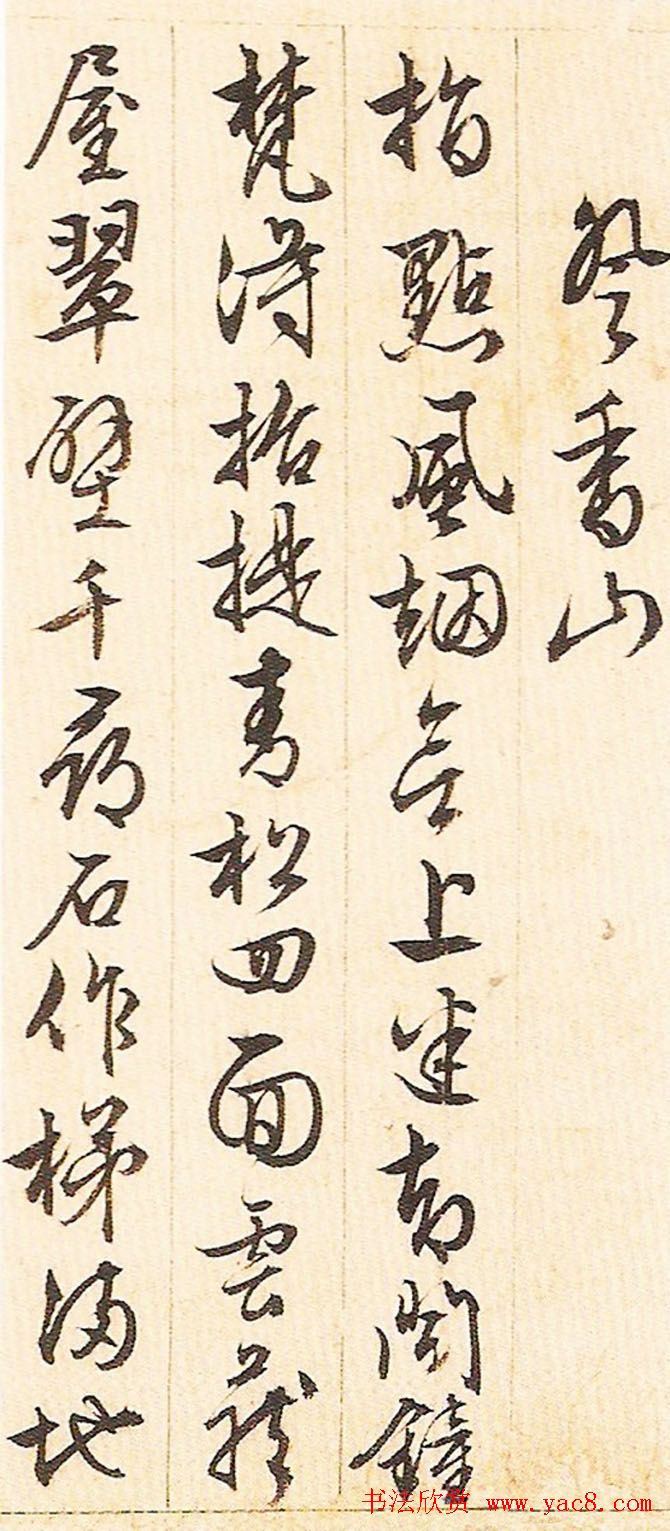 登香山
指點風烟無上迷却聞鐘
梵得招提青松四面雲藏
屋翠壁千尋石作梯滿地
书法欣赏 www.yac8.com